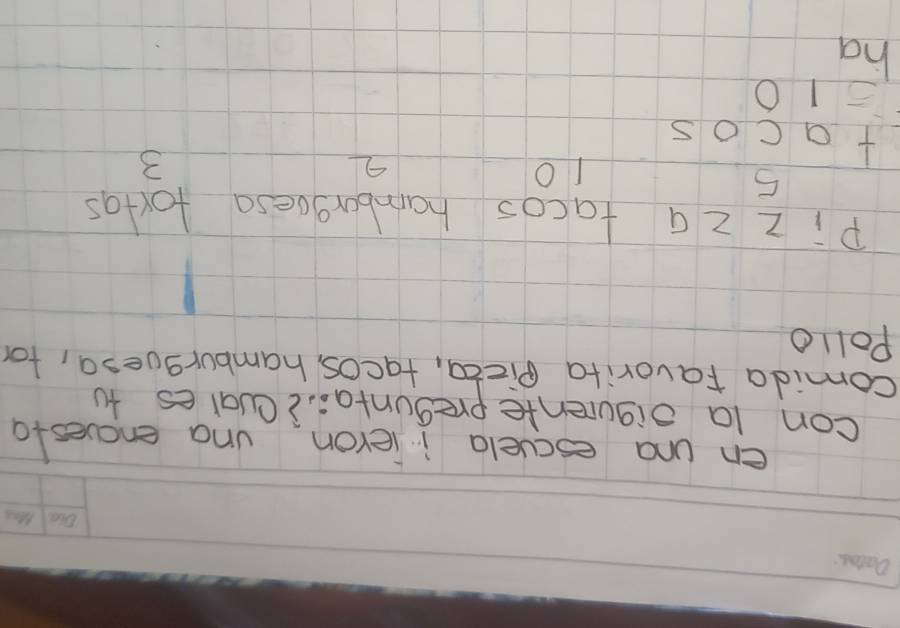 Datos:
Día Mes
en una escuela i ieron una encuesta
con la sigurente presunta: ? Qual es tu
comida favorita pizza, tacos, hamburguesa, tor
Pollo
Pizza tacos hamburguesa tortas
5 10 2 3
tacos
= 10
ha